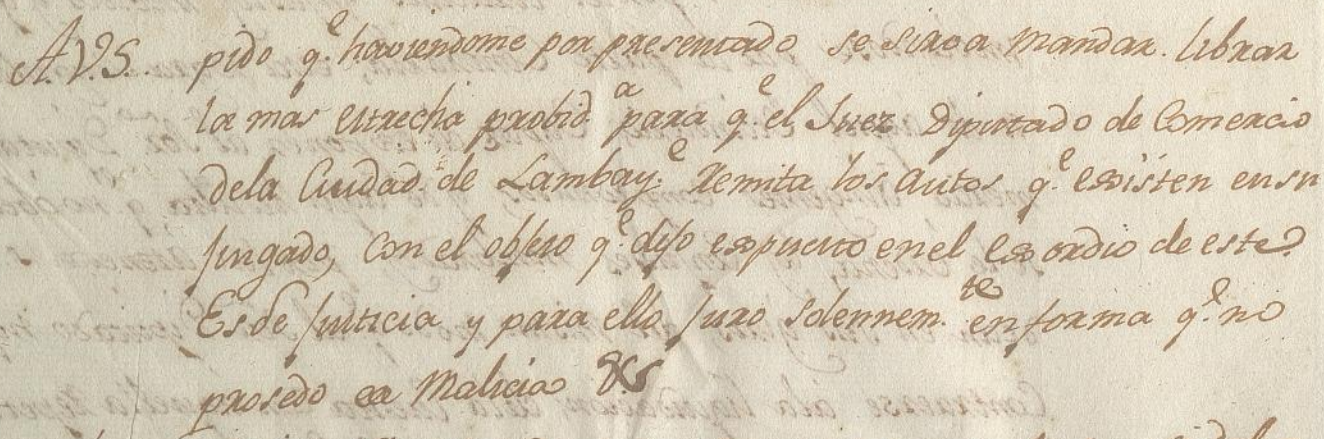 A. V.S. pido q.e haviendome por presentado se sirva mandar librar
la mas estrecha probid.a para q.e el Juez Diputado de Comercio
dela Ciudad de Lambay.e Remita los autos q.e existen en su
jugado, con el objeto q.e dijo expuesto en el exordio de este
Es de justicia y para ello juro solennem.te en forma q.e no
prosedo ea Malicia &s